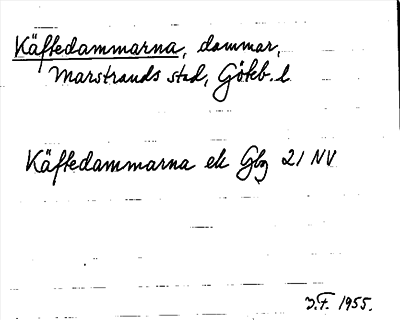 Käftedammarna, dammar,
Marstrands stad, Göteb. l.
Käftedammarna ek Gbg 21 NV
J.F. 1955.